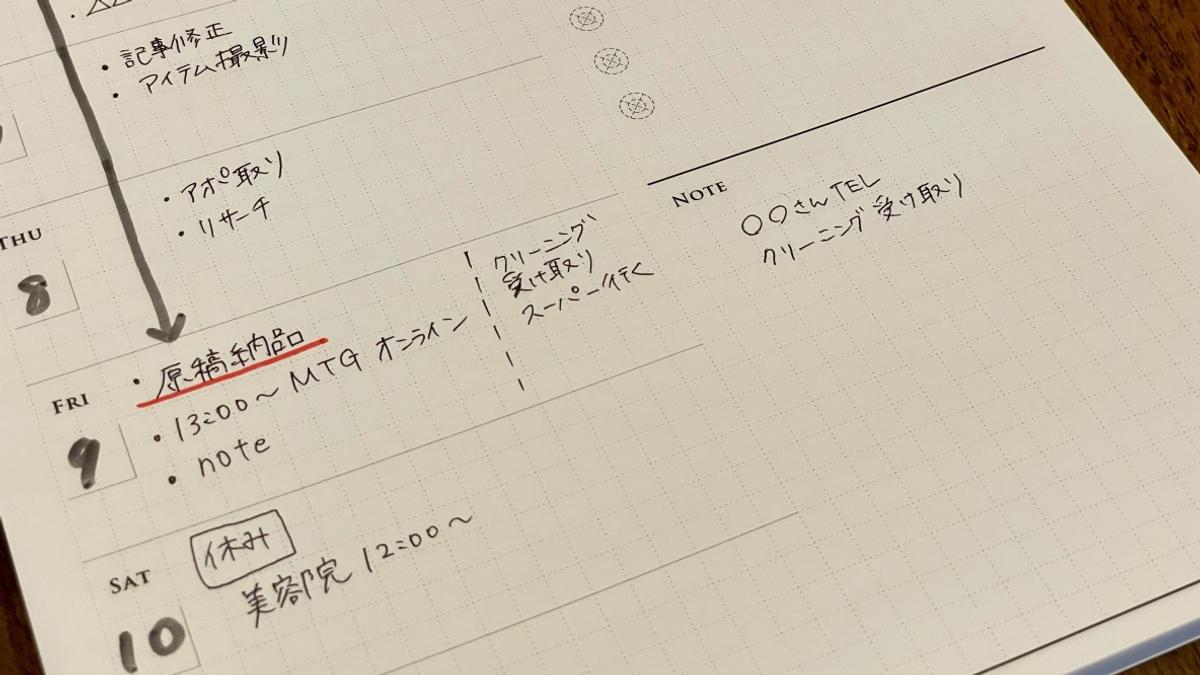 ・記事修正
・アイテム撮影
THU
8
・アポ取り
・リサーチ
FRI
9
・原稿納品
・13:00〜MTG オンライン
・note
クリーニング
受け取り
スーパー行く
SAT
10
休み
美容院 12:00〜
NOTE
〇〇さんTEL
クリーニング 受け取り